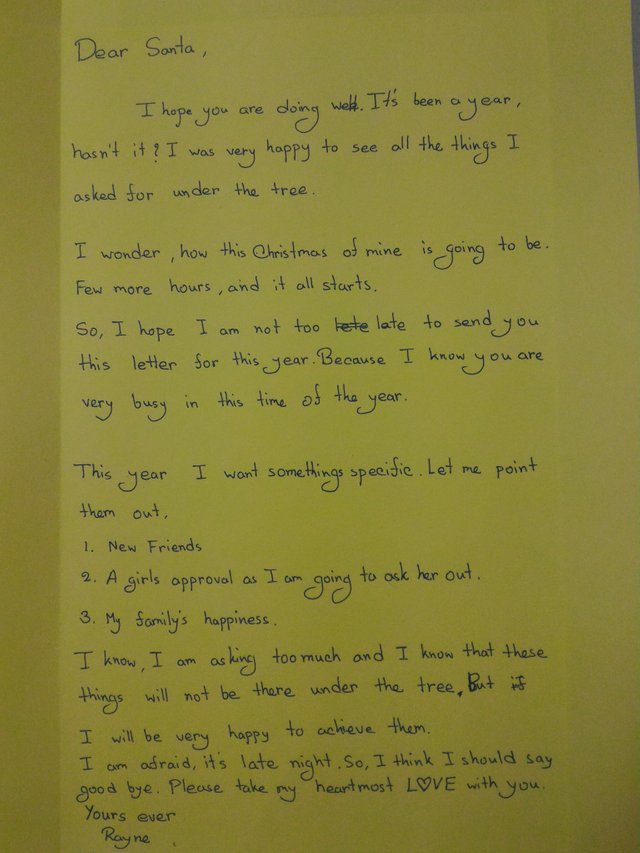 Dear Santa,
I hope you are doing well. It's been a year,
hasn't it? I was very happy to see all the things I
asked for under the tree.
I wonder, how this Christmas of mine is going to be.
Few more hours, and it all starts.
So, I hope I am not too lete late to send you
this letter for this year. Because I know you are
very busy in this time of the year.
This year I want somethings specific. Let me point
them out,
1. New Friends
2. A girls approval as I am going to ask her out.
3. My family's happiness.
I know, I am asking too much and I know that these
things will not be there under the tree, But if
I will be very happy to achieve them.
I am afraid, it's late night. So, I think I should say
good bye. Please take my heartmost L♡VE with you.
Yours ever
Rayne